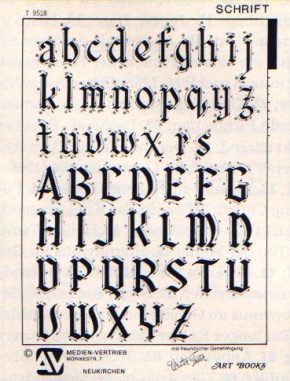 T 9518 SCHRIFT
abcdefghij
klmnopqyz
tuvwxrs
ABCDEFG
HIJKLMN
OPQRSTU
VWXYZ
© AV MEDIEN-VERTRIEB
MÖRIKESTR. 7
NEUKIRCHEN
mit freundlicher Genehmigung
ART BOOKS